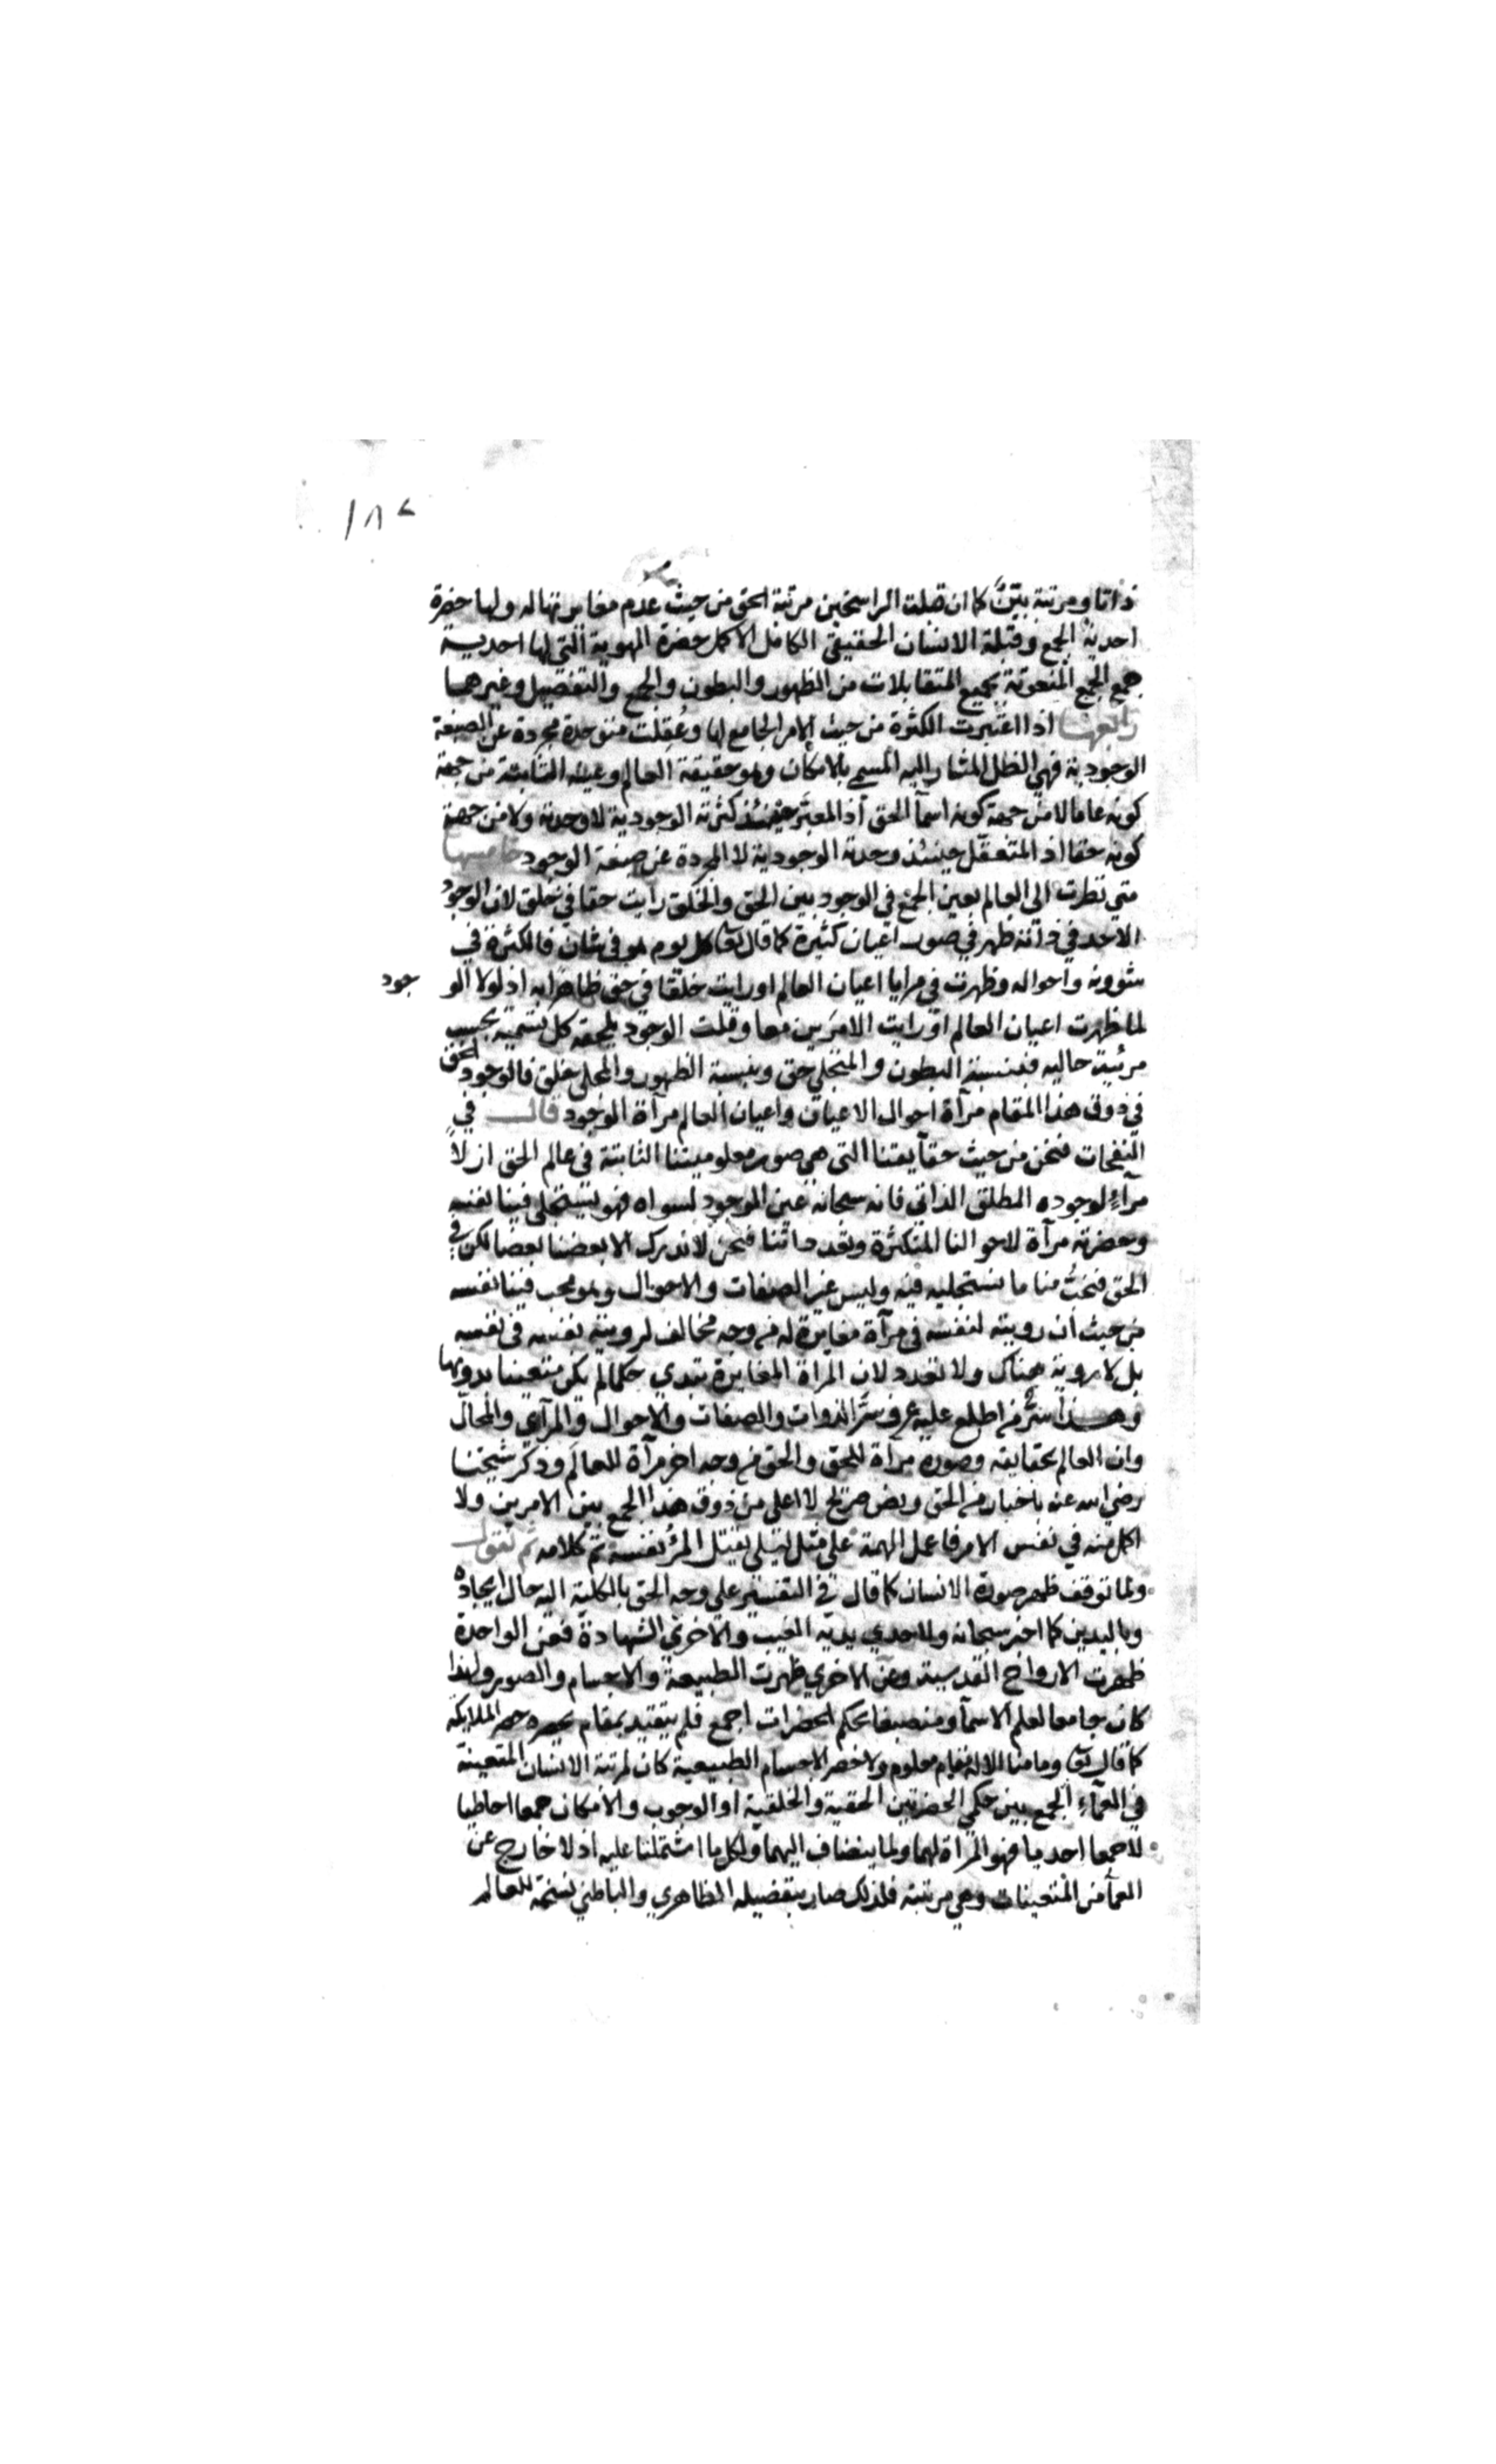 ١٨٢
ذاتا ومرتبة بيّن كما ان قبلة الراسخين مرتبة الحق من حيث عدم مغايرتها له ولها حضرة
احدية الجمع وقبلة الانسان الحقيقي الكامل الاكمل حضرة الهوية التي لها احدية
جمع الجمع المنعوتة بجميع المتقابلات من الظهور والبطون والجمع والتفصيل وغيرهما
رابعها اذا اعتبرت الكثرة من حيث الامر الجامع لها وعُقِلت متوحدة مجردة عن الصبغة
الوجودية فهي الظل المشار اليه المسمي بالامكان وهو حقيقة العالم وعينه الثابتة من جهة
كونه عاما لا من جهة كونه اسما للحق اذ المعتبَر حينئذ كثرته الوجودية لا وحدته ولا من جهة
كونه حقا اذ المتعقّل حينئذ وحدته الوجودية لا المجردة عن صبغة الوجود خامسها
متي نظرت الى العالم بعين الجمع في الوجود بين الحق والخلق رايت حقا في خلق لان الوجود
الاحد في ذاته ظهر في صور اعيان كثيرة كما قال تعا كل يوم هو في شان فالكثرة في
شؤونه واحواله وظهرت في مرايا اعيان العالم او رايت خلقا في حق ظاهرا به اذ لولا الو جود
لما ظهرت اعيان العالم او رايت الامرَين معا وقلت الوجود يلحقه كل تسمية بحسب
مرتبة حاليه فبنسبة البطون والمتجلي حق وبنسبة الظهور والمجلى خلق فالوجود الحق
في ذوق هذا المقام مرآة احوال الاعيان واعيان العالم مرآة الوجود قال في
النفحات فنحن من حيث حقايقنا التي هي صور معلوميتنا الثابتة في عالم الحق ازلاً
مرآءٍ لوجوده المطلق الذاتي فانه سبحانه عين الموجود لسواه فهو يستجلى فينا نفسه
وحضرته مرآة لاحوالنا المتكثرة وتعدداتنا فنحن لا ندرك الا بعضنا بعضا لكن في
الحق فنحبُّ منا ما نستجليه فيه وليس غير الصفات والاحوال وهو يحب فينا نفسه
من حيث ان رويته لنفسه في مرآة مغايرة له من وجه مخالف لرويته نفسه في نفسه
بل لا روية هناك ولا تعدد لان المرآة المغايرة تبدي حكما لم يكن متعينا بدونها
وهذا سرٌّ من اطلع عليه عرف سرَّ الذوات والصفات والاحوال والمرآي والمجال
وان العالم بحقايقه وصوره مرآة للحق والحق من وجه اخر مرآة للعالم وذكر شيخنا
رضي الله عنه باخبار من الحق ونص صريح لا اعلى من ذوق هذا الجمع بين الامرين ولا
اكمل منه في نفس الامر فاعمل الهمة على مثل ليلى يقتل المرُ نفسه تم كلامه ثم نقول
ولما توقف ظهور صورة الانسان كما قال في التفسير علي وجه الحق بالكلية اليه حال ايجاده
وباليدين كما اخبر سبحانه ولاحدي يديه الغيب والاخرى الشهادة فعن الواحدة
ظهرت الارواح القدسية وعن الاخري ظهرت الطبيعة والاجسام والصور ولهذا
كان جامعا لعلم الاسما ومنصبغا بحكم الحضرات اجمع فلم يتقيد بمقام يحصره حصر الملايكة
كما قال تعا وما منا الا له مقام معلوم ولا حصر الاجسام الطبيعية كان لمرتبة الانسان المتعينة
في العمآء الجمع بين حكمي الحضرتين الحقية والخلقية او الوجوب والامكان جمعا احاطيا
لا جمعا احديا فهو المرآة لهما ولما ينضاف اليهما ولكل ما اشتملتا عليه اذ لا خارج عن
العما من المتعينات وهي مرتبته فلذلك صار بتفصيله الظاهري والباطني نسخة للعالم